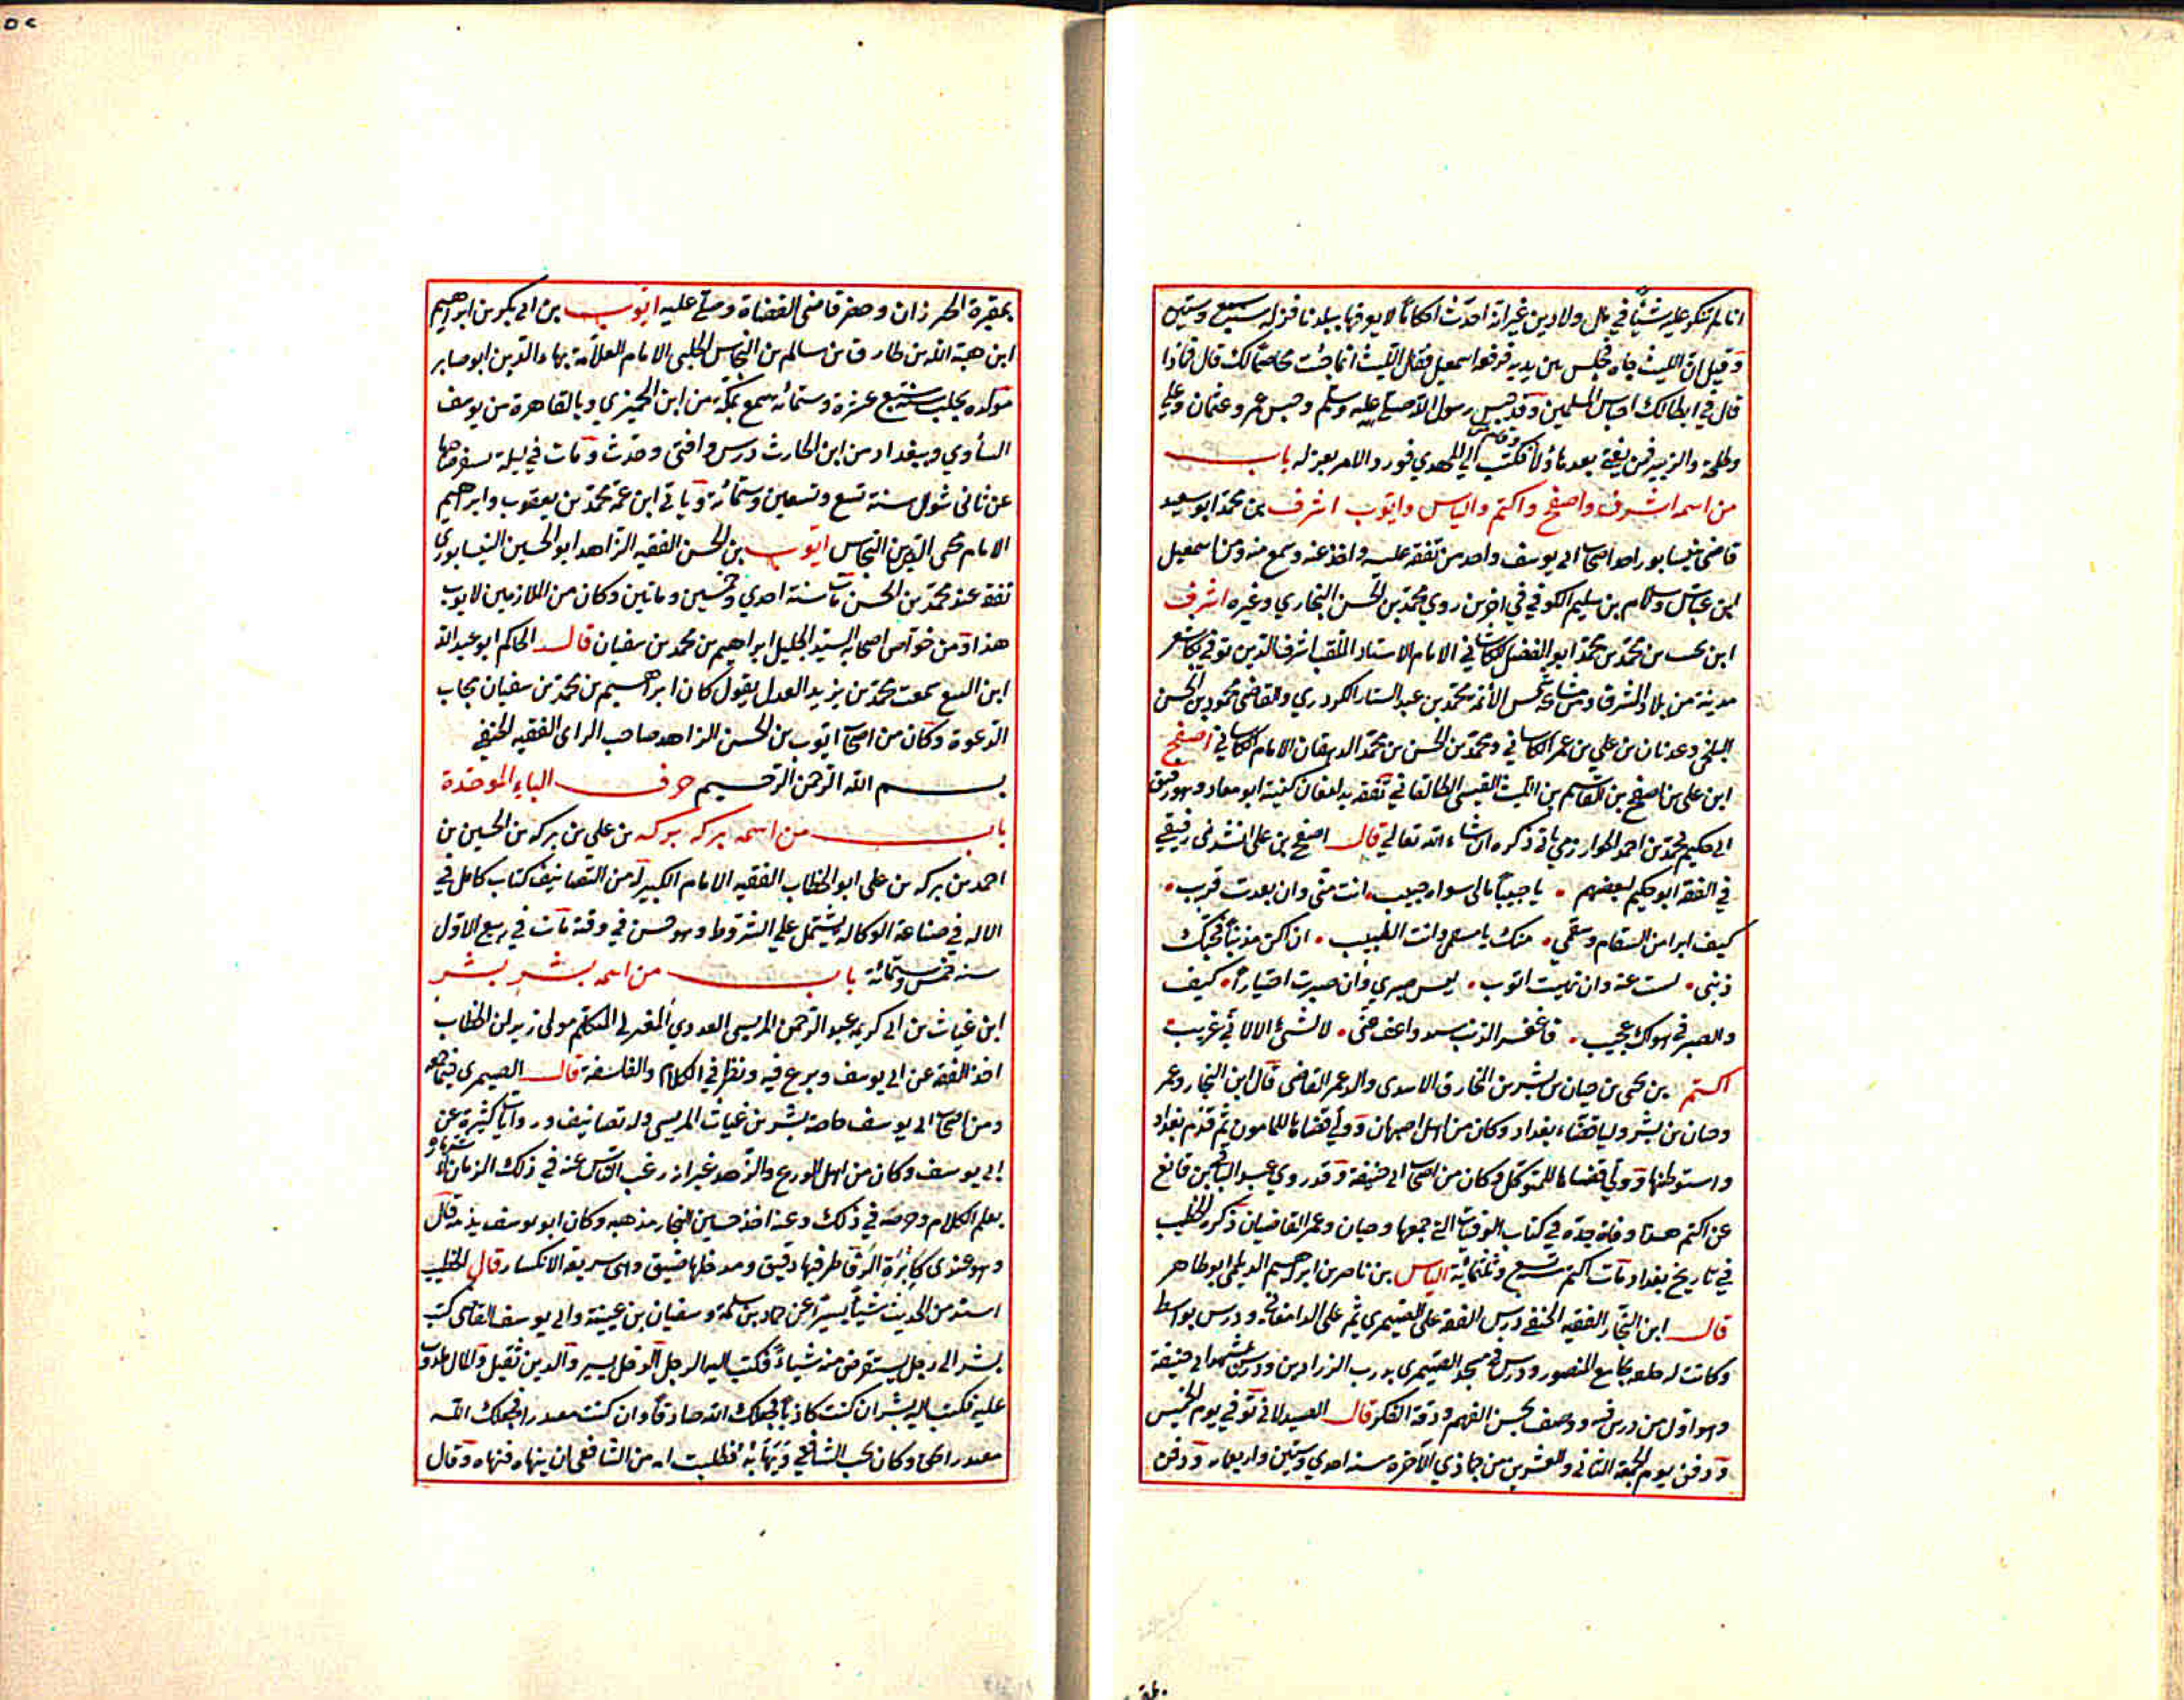 انا لم ننكر عليه شيئا في مال ولا دين غير انه احدث احكاما لا يعرفها ببلدنا فعزله سنة سبع وستين
وقيل ان الليث جاء فجلس بين يديه فرفعه اسمعيل فقال الليث انما جئت مخاصما لك قال فى ماذا
قال في ابطالك احباس المسلمين وقد حبس رسول الله صلى الله عليه وسلم وحبس عمر وعثمان وعلي
وطلحة والزبير فمن بقى بعد هاؤلاء وقام فكتب الى المهدي فورد الامر بعزله باب
من اسمه اشرف واصفح واكتم والياس وايوب اشرف بن محمد ابو سعيد
قاضى نيسابور احد اصحاب ابى يوسف واحد من تفقه عليه واخذ عنه وسمع منه ومن اسمعيل
ابن عياش وسلام بن سليم الكوفي في اخرين روي محمد بن الحسن البخاري وغيره اشرف
ابن نجيب من محمد بن محمد ابو الفضل الكاساني الامام الاستاد الملقب اشرف الدين توفي بكاشغر
مدينة من بلاد الشرق ومن مشايخه شمس الائمة محمد بن عبد الستار الكردري والقاضى محمود بن الحسن
البلخى وعدنان بن علي بن عمر الكاساني ومحمد بن الحسن بن محمد الدهقان الامام الكاساني اصفح
ابن على بن اصفح بن القاسم بن الليث القيسى الطالقاني تفقه بدامغان كنيته ابو معاد وهو رفيق
ابى حكيم محمد بن احمد الخوارزمي ياتى ذكره ان شاء الله تعالى قال اصفح بن على انشدنى رفيقي
في الفقه ابو حكيم لبعضهم • يا حبيبا مالى سواه حبيب • انت منى وان بعدت قريب •
كيف ابرا من السقام وسقمي • منك يا مسقمي وانت الطبيب • ان اكن مذنبا فحبك
ذنبى • لست عنه وان نهيت اتوب • ليس صبري وان صبرت اختيارا • كيف
والصبر في هواك عجيب • فاغفر الذنب سيد واعف عنى • لا لشئ الا لانى غريب
اكتم بن يحى بن حيان بن بشر بن المخارق الاسدى والد عمر القاضى قال ابن النجار وعمر
وحيان بن بشر وليا قضاء بغداد وكان من اهل اصبهان وولى قضاها للمامون ثم قدم بغداد
واستوطنها وولى قضاها للمتوكل وكان من اصحاب ابى حنيفة وقد روي عبد الباقي بن قانع
عن اكتم هذا وفاة جده في كتاب الوفيات التى جمعها وحيان وعمر القاضيان ذكره الخطيب
في تاريخ بغداد مات اكتم سنة سبع وثلثمائة الياس بن ناصر بن ابراهيم الديلمى ابو طاهر
قال ابن النجار الفقيه الحنفي درس الفقه على الصيمري ثم على الدامغاني ودرس بواسط
وكانت له حلقه بجامع المنصور ودرس في مسجد الصيمرى بدرب الزرادين ودرس بمشهد ابى حنيفة
وهو اول من درس فيه ووصف بحسن الفهم ودقة الفكر قال الصيدلانى توفي يوم الخميس
ودفن يوم الجمعة الثانى والعشرين من جمادي الآخرة سنة احدي وستين واربعمائة ودفن
بمقبرة الخيزران وحضر قاضى القضاة وصلى عليه ايوب بن ابى بكر بن ابراهيم
ابن هبة الله بن طارق بن سالم بن النحاس الحلبى الامام العلامة بهاء الدين ابو صابر
مولده بحلب سنة سبع عشرة وستمائة سمع بمكة من ابن الجميزي وبالقاهرة من يوسف
الساوي وببغداد من ابن الحارث درس وافتى وحدث ومات في ليلة يسفر صباحها
عن ثانى شوال سنة تسع وتسعين وستمائة وياتى ابن عمه محمد بن يعقوب وابراهيم
الامام محى الدين النحاس ايوب بن الحسن الفقيه الزاهد ابو الحسين النيسابوري
تفقه عند محمد بن الحسن مات سنة احدي وخمسين وماتين وكان من الملازمين لايوب
هذا ومن خواص اصحابه السيد الجليل ابراهيم بن محمد بن سفيان قال الحاكم ابو عبد الله
ابن البيع سمعت محمد بن يزيد العدل يقول كان ابراهيم بن محمد بن سفيان مجاب
الدعوة وكان من اصحاب ايوب بن الحسن الزاهد صاحب الراى الفقيه الحنفي
بسم الله الرحمن الرحيم حرف الباء الموحدة
باب من اسمه بركه بركه بن علي بن بركه بن الحسين بن
احمد بن بركه بن على ابو الخطاب الفقيه الامام الكبير له من التصانيف كتاب كامل في
الاله في صناعة الوكاله يشتمل على الشروط وهو حسن في وقته مات في ربيع الاول
سنة خمس وستمائة باب من اسمه بشر بشر
ابن غياث بن ابى كريمه عبد الرحمن المريسى العدوي المعتزلى المتكلم مولى زيد ابن الخطاب
اخذ الفقه عن ابى يوسف وبرع فيه ونظر في الكلام والفلسفة قال الصيمرى فيما جمعه
ومن اصحاب ابى يوسف خاصة بشر بن غياث المريسى وله تصانيف وروايات كثيرة عن
ابى يوسف وكان من اهل الورع والزهد غير انه رغب الناس عنه في ذلك الزمان لاشتهاره
بعلم الكلام وخوضه في ذلك وعنه اخذ حسين النجار مذهبه وكان ابو يوسف يذمه قال
وهو عندى كابرة الرفا طرفها دقيق ومدخلها ضيق وهى سريعة الانكسار قال الخطيب
اسند من الحديث شيئا يسيرا عن حماد بن سلمة وسفيان بن عيينة وابى يوسف القاضى كتب
بشر الى رجل يستقرض منه شياء فكتب اليه الرجل الدخل يسير والدين ثقيل والمال مكذوب
عليه فكتب اليه بشر ان كنت كاذبا فجعلك الله صادقا وان كنت معتذرا فجعلك الله
معذورا وكان يحب الشافعي فطلبت امه من الشافعى ان ينهاه فنهاه وقال